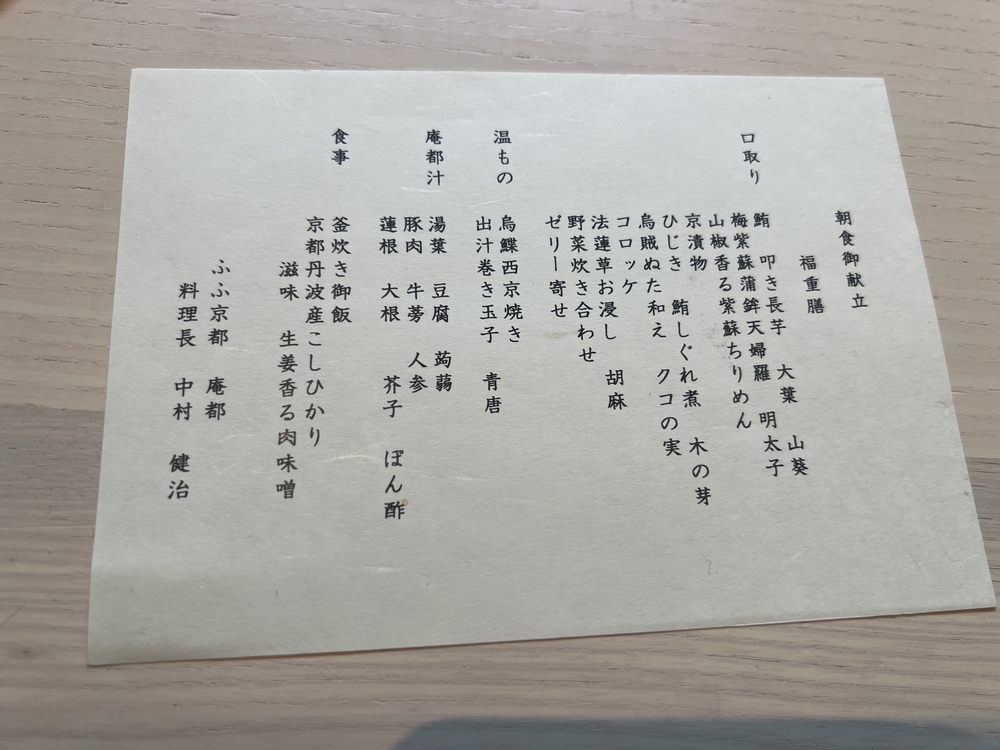 朝食御献立
福重膳
口取り
鮪 叩き長芋 大葉 山葵
梅紫蘇蒲鉾天婦羅 明太子
山椒香る紫蘇ちりめん
京漬物 鮪しぐれ煮 木の芽
ひじき クコの実
烏賊ぬた和え
コロッケ
法蓮草お浸し 胡麻
野菜炊き合わせ
ゼリー寄せ
温もの
烏鰈西京焼き
出汁巻き玉子 青唐
庵都汁
湯葉 豆腐 蒟蒻
豚肉 牛蒡 人参
蓮根 大根 芥子 ぽん酢
食事
釜炊き御飯
京都丹波産こしひかり
滋味 生姜香る肉味噌
ふふ京都 庵都
料理長 中村 健治